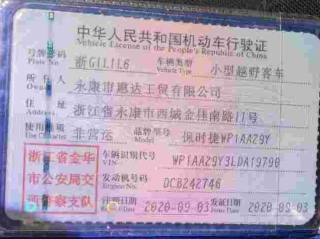 中华人民共和国机动车行驶证
Vehicle License of the People's Republic of China
号牌号码 Plate No. 浙G1L1L6 车辆类型 Vehicle Type 小型越野客车
所有人 Owner 永康市惠达工贸有限公司
住址 Address 浙江省永康市西城金桂南路11号
使用性质 Use 非营运 品牌型号 Model 保时捷WP1AA29Y
浙江省金华 车辆识别代号 VIN WP1AA29Y3LDA19790
市公安局交 发动机号码 Engine No. DCB242746
警察支队 注册日期 2020-09-03 发证日期 2020-09-03